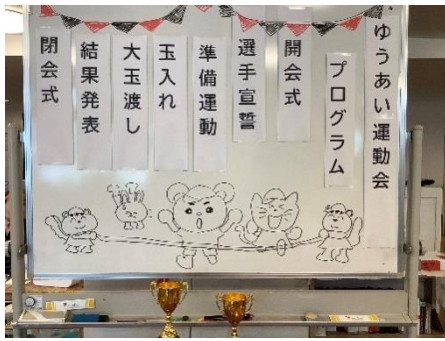 ゆうあい運動会
プログラム
開会式
選手宣誓
準備運動
玉入れ
大玉渡し
結果発表
閉会式